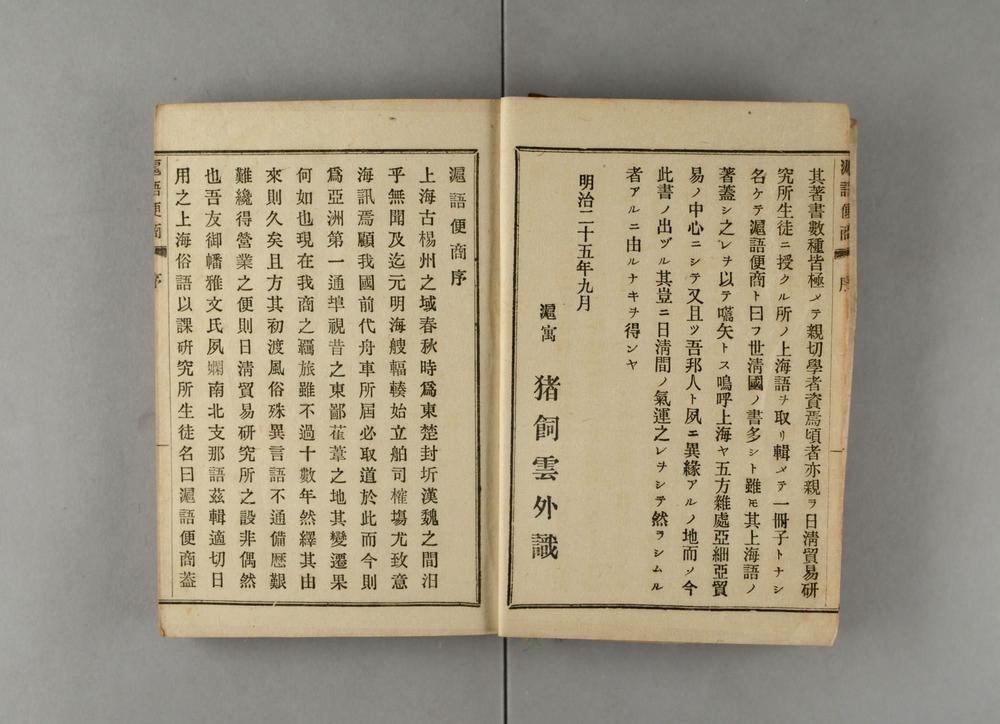 滬語便商 序
其著書數種皆極メテ親切學者資焉頃者亦親ヲ日淸貿易研
究所生徒ニ授クル所ノ上海語ヲ取リ輯メテ一冊子トナシ
名ケテ滬語便商ト曰フ世淸國ノ書多シト雖モ其上海語ノ
著蓋シ之レヲ以テ嚆矢トス嗚呼上海ヤ五方雜處亞細亞貿
易ノ中心ニシテ又且ツ吾邦人ト夙ニ異緣アルノ地而ソ今
此書ノ出ヅル其豈ニ日淸間ノ氣運之レヲシテ然ラシムル
者アルニ由ルナキヲ得ンヤ
明治二十五年九月
滬寓 猪飼雲外識
滬語便商序
上海古楊州之域春秋時爲東楚封圻漢魏之間汨
乎無聞及迄元明海艘輻輳始立舶司榷塲尤致意
海訊焉顧我國前代舟車所屆必取道於此而今則
爲亞洲第一通埠視昔之東鄙萑葦之地其變遷果
何如也現在我商之羈旅雖不過十數年然繹其由
來則久矣且方其初渡風俗殊異言語不通備歷艱
難纔得營業之便則日淸貿易研究所之設非偶然
也吾友御幡雅文氏夙嫻南北支那語茲輯適切日
用之上海俗語以課硏究所生徒名曰滬語便商蓋
滬語便商 序